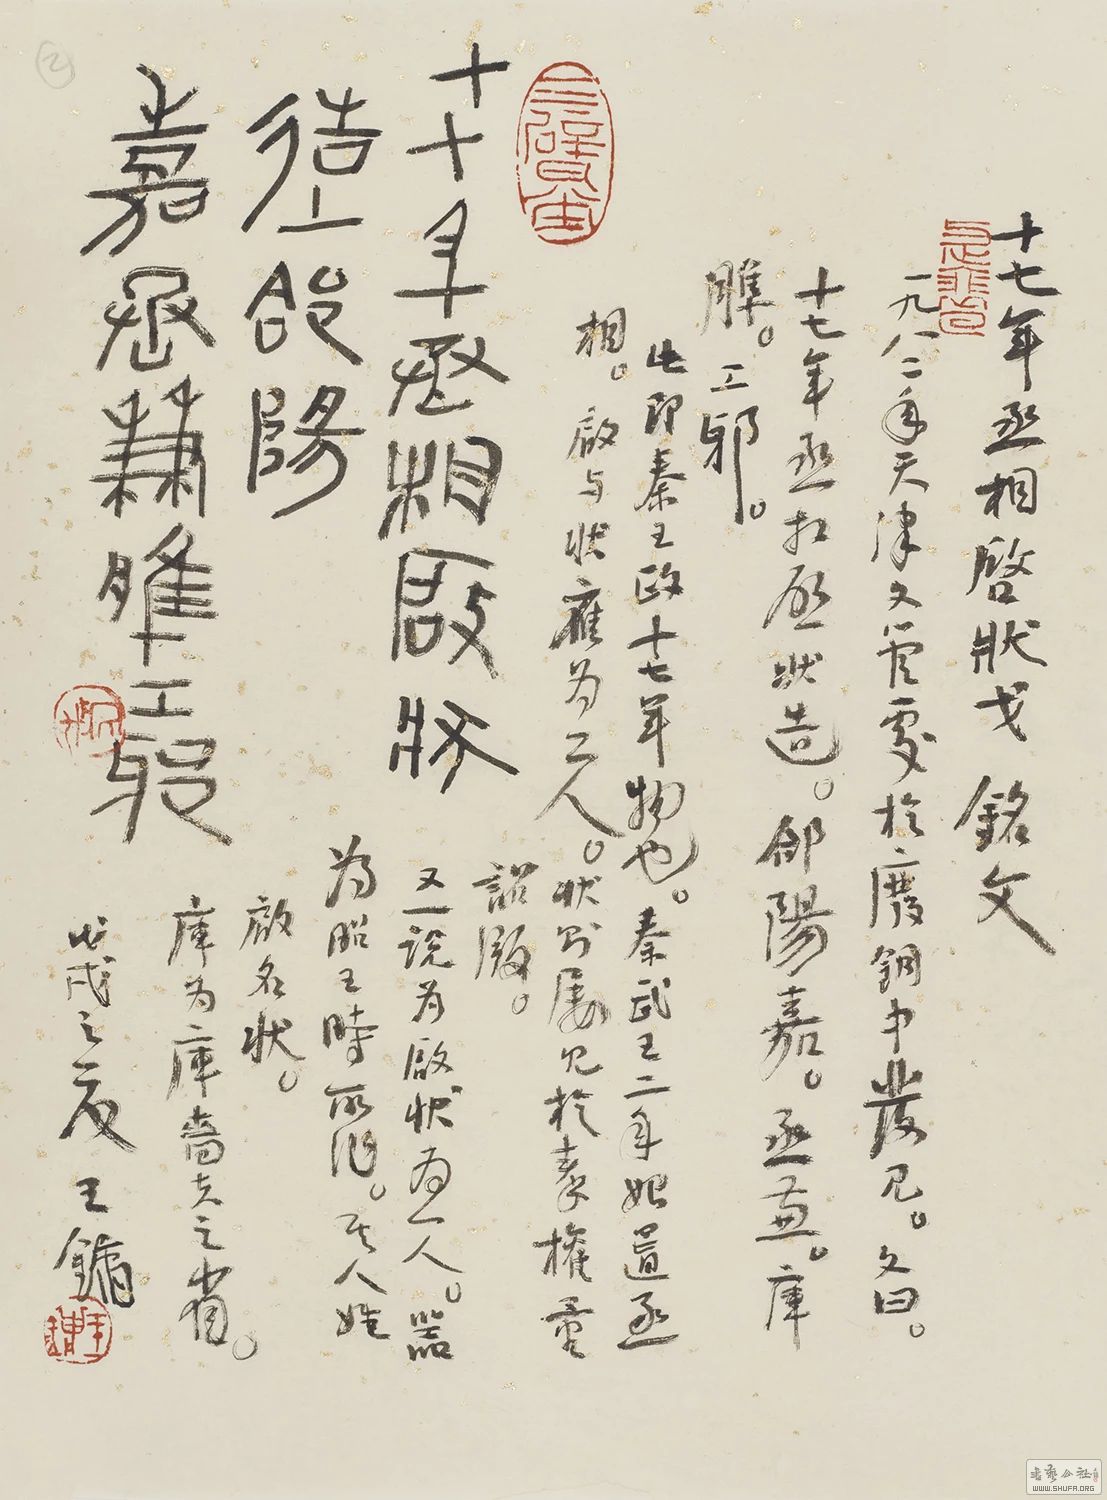 十七年丞相啓狀戈銘文
一九八二年天津文管處於廢銅中發見。文曰。
十七年丞相啟狀造。郃陽嘉。丞兼。庫
脽。工邪。
此即秦王政十七年物也。秦武王二年始置丞
相。啟与狀應为二人。狀则屢见於秦權量
詔版。
又一説为啟狀为一人。器
为昭王時所作。其人姓
啟名狀。
庫为庫嗇夫之省。
十七年丞相啟狀
造郃陽
嘉丞兼庫脽工邪
戊戌之夏王鏞
WWW.SHUFA.ORG